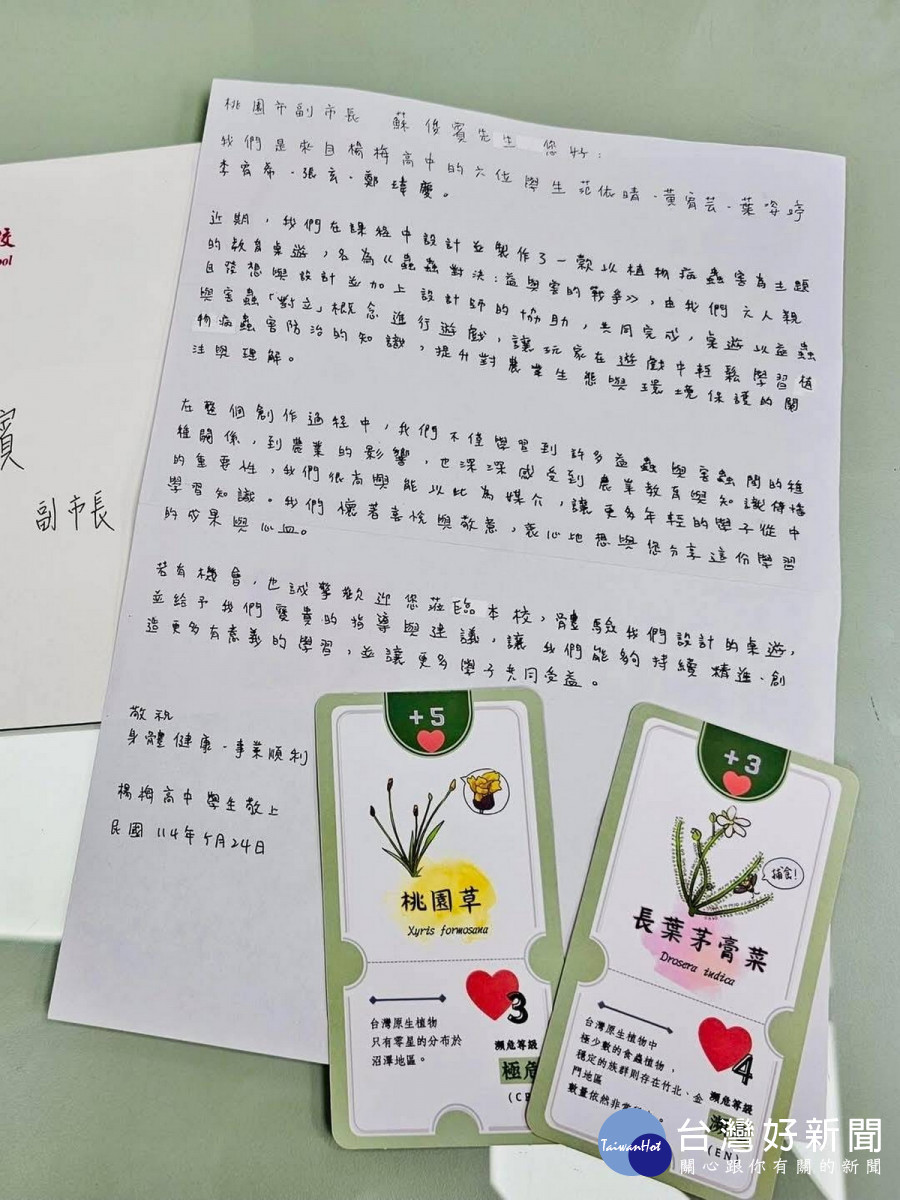 校
ool
賓
副市長
桃園市副市長 蘇俊賓先生 您好:
我們是來自楊梅高中的六位學生范依晴、黃宥芸、葉姿婷
李宥希、張玄、鄭瑋慶。
近期,我們在課程中設計並製作了一款以植物病蟲害為主題
的教育桌遊,名為《蟲蟲對決:益與害的戰爭》,由我們六人親
自發想與設計並加上設計師的協助,共同完成,桌遊以益蟲
與害蟲「對立」概念進行遊戲,讓玩家在遊戲中輕鬆學習植
物病蟲害防治的知識,提升對農業生態與環境保護的關
注與理解。
在整個創作過程中,我們不僅學習到許多益蟲與害蟲間的種
種關係,到農業的影響,也深深感受到農業教育與知識傳播
的重要性,我們很高興能以此為媒介,讓更多年輕的學子從中
學習知識。我們懷著喜悅與敬意,衷心地想與您分享這份學習
的成果與心血。
若有機會,也誠摯歡迎您蒞臨本校,體驗我們設計的桌遊,
並給予我們寶貴的指導與建議,讓我們能夠持續精進、創
造更多有意義的學習,並讓更多學子共同受益。
敬祝
身體健康、事業順利
楊梅高中學生敬上
民國 114年5月24日
+5
桃園草
Xyris formosana
3
台灣原生植物
只有零星的分布於
沼澤地區。
瀕危等級
極危
+3
捕食!
長葉茅膏菜
Drosera indica
4
台灣原生植物中
極少數的食蟲植物,
穩定的族群則存在竹北、金
門地區
數量依然非常
瀕危等級
(EN)
TaiwanHot
台灣好新聞
關心跟你有關的新聞